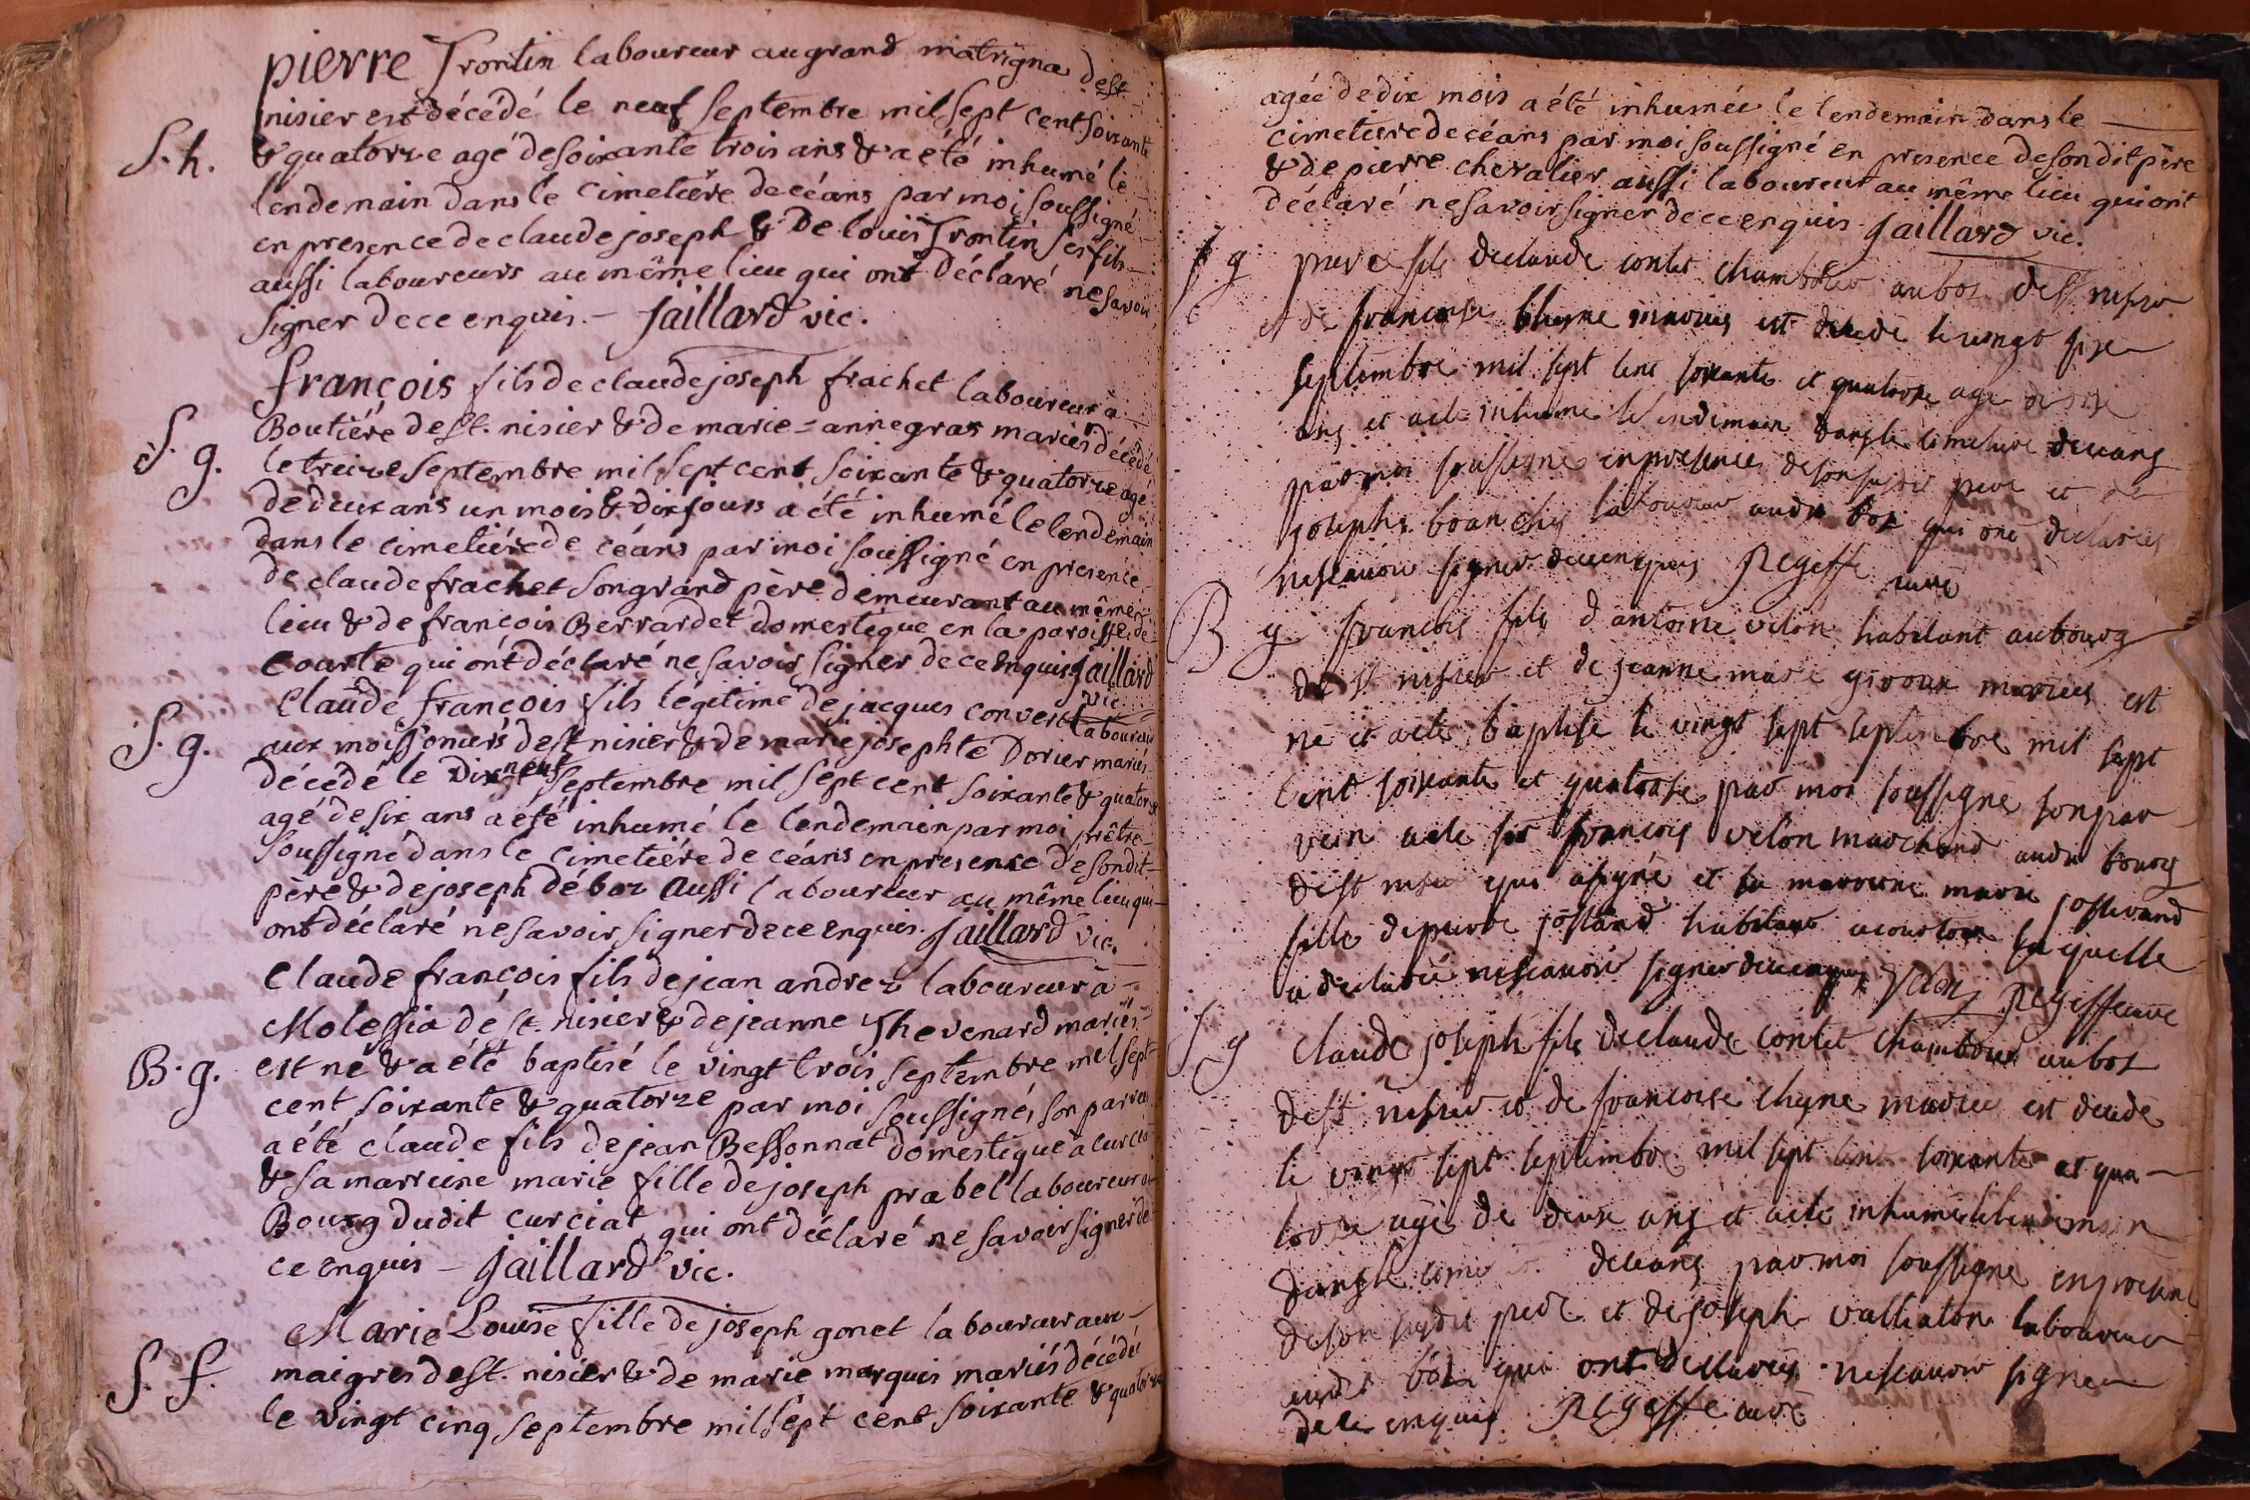 pierre Trontin laboureur au grand matrigna de st.
nisier est décédé le neuf septembre mil sept cent soixante
S. h.
& quatorze agé de soixante trois ans & a été inhumé le
lendemain dans le cimetière de céans par moi soussigné
en presence de claude joseph & De louis Trontin ses fils
aussi laboureurs au même lieu qui ont déclaré ne savoir
signer de ce enquis. - Jaillard vic.
françois fils de claude joseph frachet laboureur à
Boutière de st. nisier & de marie = anne gras mariés décédé
S. g.
le treize septembre mil sept cent soixante & quatorze agé
de deux ans un mois & dix jours a été inhumé le lendemain
dans le cimetière de céans par moi soussigné en presence
de claude frachet son grand père demeurant au même
lieu & de françois Berrardet domestique en la paroisse de
Courte qui ont déclaré ne savoir signer de ce enquis Jaillard
vic.
Claude françois fils légitime de jacques convert laboureur
S. g.
aux moissoniers de st. nisier & de marie josephte Dorier mariés
décédé le dix neuf septembre mil sept cent soixante & quatorze
agé de six ans a été inhumé le lendemain par moi prêtre
soussigné dans le cimetière de céans en presence de son dit
père & de joseph débor aussi laboureur au même lieu qui
ont déclaré ne savoir signer de ce enquis. Jaillard vic.
Claude françois fils de jean andrez laboureur à
Molessia de st. nisier & de jeanne Thevenard mariés
B. g.
est né & a été baptisé le vingt trois septembre mil sept
cent soixante & quatorze par moi soussigné, son parrein
a été claude fils de jean Bessonnat domestique à curciat
& sa marreine marie fille de joseph prabel laboureur au
Bourg dudit curciat qui ont déclaré ne savoir signer de
ce enquis - Jaillard vic.
Marie Louise fille de joseph gonet laboureur aux
S. f.
maigres de st. nisier & de marie marquis mariés décédée
le vingt cinq septembre mil sept cent soixante & quatorze
agée de dix mois a été inhumée le lendemain dans le
cimetiere de céans par moi soussigné en presence de son dit père
& de pierre chevalier aussi laboureur au même lieu qui ont
déclaré ne savoir signer de ce enquis Jaillard vic.
S g pierre fils de claude contet chamboux au bos de st nisier
et de francoise chyne mariés est decede le vingt six
septembre mil sept cent soixante et quatorze age de six
ans et a ete inhume le lendemain dans le cimetiere de ceans
par moi soussigne en presence de son susdit pere et de
joseph branchy laboureur audit bos qui ont declares
ne scauoir signer de ce enquis Regeffe curé
B g francois fils d'antoine velon habitant au bourg
de st nisier et de jeanne marie giroux maries est
né et a ete baptise le vingt sept septembre mil sept
cent soixante et quatorze par moi soussigne son par
rein a ete sr francois velon marchand audit bourg
de st nisier qui a signé et sa marreine marie josserand
fille de pierre josserand habitant a courtoux laquelle
a declaré ne scauoir signer de ce enquis Velon Regeffe curé
S g claude joseph fils de claude contet chamboux au bos
de st nisier et de francoise chyne maries est decede
le vingt sept septembre mil sept cent soixante et qua
torze agé de deux ans et a ete inhumé le lendemain
dans le cime de ceans par moi soussigne en presence
de son susdit pere et de joseph valliaton laboureur
audit bos qui ont declares ne scauoir signer
de ce enquis Regeffe curé